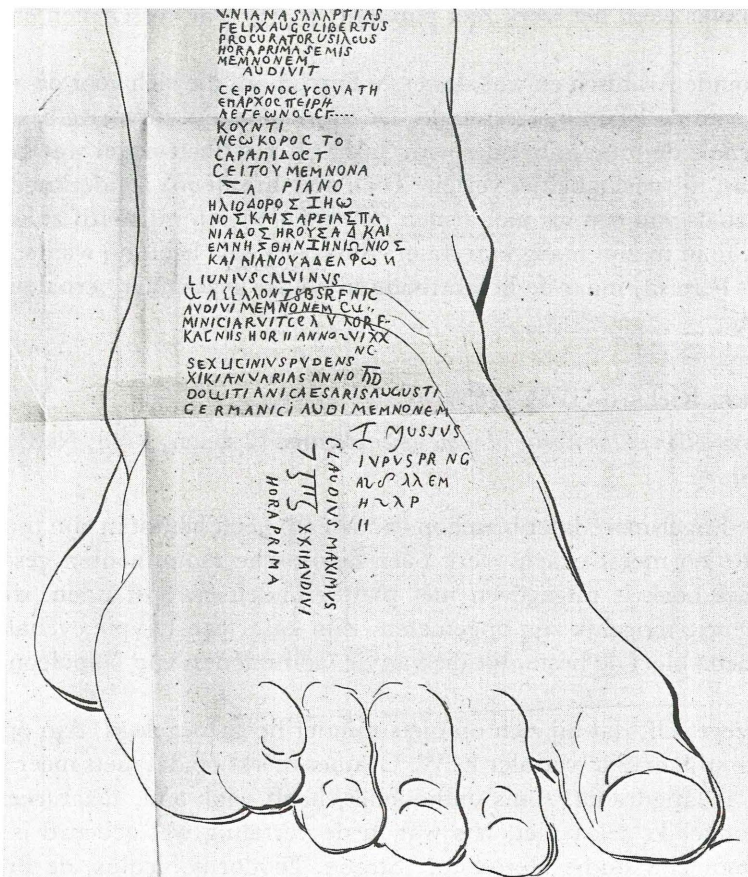 V·NIANASΛΛΛPTIAS
FELIXAUGGLIBERTUS
PROCURATORUSIACUS
HORAPRIMASEMIS
MEMNONEM
AUDIVIT
CEPONOCYCOVATH
ΕΠΑΡΧΟΣΠΕΙΡΗ
ΛΕΓΕΩΝΟΣCΓ....
ΚΟΥΝΤΙ
ΝΕΩΚΟΡΟC ΤΟ
CΑΡΑΠΙΔΟC Τ
CΕΙΤΟΥ ΜΕΜΝΟΝΑ
Σ ΡΙΑΝΟ
ΗΛΙΟΔΟΡΟΣ ΙΗΩ
ΝΟΣΚΑΙΣΑΡΕΙΑΣΠΑ
ΝΙΑΔΟΣ ΗΡΟΥΣΑ Δ ΚΑΙ
ΕΜΝΗΣΘΗΝΙΗΝΙΩΝΙΟΣ
ΚΑΙ ΑΙΑΝΟΥΑΔΕΛΦΩΝ
LIUNIUSCALVINVS
AVDIVI MEMNONEM CU..
MINICIARVITCΕΛ V ΛORF
KACNIIS HOR II ANNO~VIXX
NC
SEXLICINIVSPVDENS
XIKIANVARIAS ANNO IIID
DOWITIANICAESARISAUGUSTI
GERMANICI AUDI MEMNONEM
I MUSIUS
IVPVSPR NG
H~λP
II
CLAUDIUS MAXIMUS
XXIIAUDIVI
HORAPRIMA